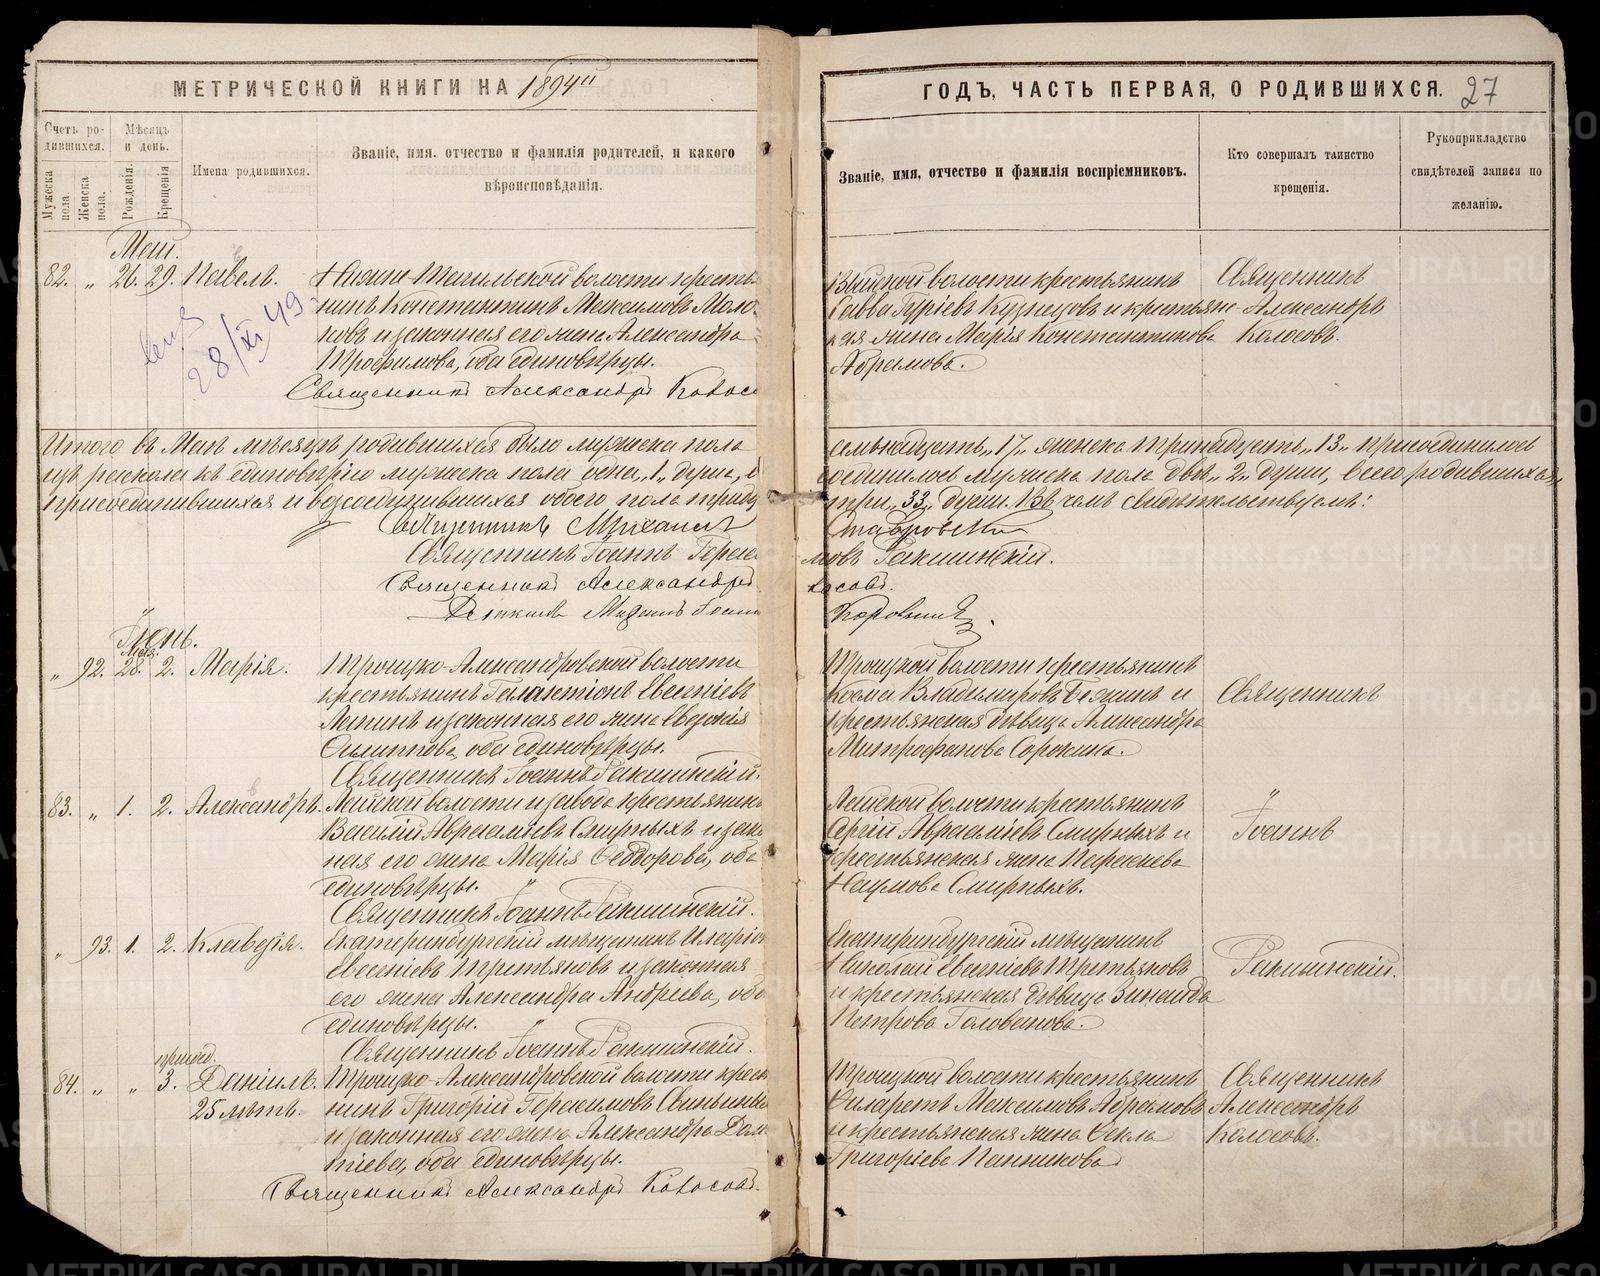 МЕТРИЧЕСКОЙ КНИГИ НА 1894й
Счетъ ро-
дившихся.
Мѣсяцъ
и день.
Имена родившихся.
Званіе, имя, отчество и фамилія родителей, и какого
вѣроисповѣданія.
Мужеска пола.
Женска пола.
Рожденія.
Крещенія
Маій.
82. „ 26. 29. Павелъ. Нижне-Тагильской волости кресть
нинъ Константинъ Максимовъ
ковъ и законная его жена Александра
Трофимова, оба единовѣрцы.
Священникъ Александръ Колосо
28/XI 49
Итого въ Маѣ мѣсяцѣ родившихся было мужеска пола
изъ раскола къ единовѣрію мужеска пола одна „1„ душа,
присоединившихся и возсоединившихся обоего пола
Священникъ Михаилъ
Священникъ Іоаннъ Гераси
Священникъ Александръ
Михаилъ
Іюнь.
Мая.
„ 92. 28. 2. Марія. Троицко-Александровской волости
крестьянинъ Галактіонъ Евгеніевъ
Лапинъ и законная его жена Евдокія
Филиппова, оба единовѣрцы.
Священникъ Іоаннъ Ракшинскій.
83. „ 1. 2. Александръ. Лайской волости и завода крестьянинъ
Василій Авраамовъ Смирныхъ и закон
ная его жена Марія Ѳедорова, оба
единовѣрцы.
Священникъ Іоаннъ Ракшинскій.
„ 93. 1. 2. Клавдія. Екатеринбургскій мѣщанинъ Иларіон
Евгеніевъ Третьяковъ и законная
его жена Александра Андреева, оба
единовѣрцы.
Священникъ Іоаннъ Ракшинскій.
присоед.
84. „ „ 3. Даніилъ. Троицко-Александровской волости кресть
25 лѣтъ. нинъ Григорій Герасимовъ
и законная его жена Александра
тіева, оба единовѣрцы.
Священникъ Александръ Колосовъ.
ГОДЪ, ЧАСТЬ ПЕРВАЯ, О РОДИВШИХСЯ. 27
Званіе, имя, отчество и фамилія воспріемниковъ.
Кто совершалъ таинство
крещенія.
Рукоприкладство
свидѣтелей записи по
желанію.
Выйской волости крестьянинъ Священникъ
Савва Гуріевъ Кузнецовъ и крестьянс- Александръ
кая жена Марія Константинова Колосовъ.
Абрамова.
семьнадцать „17„ женска тринадцать „13„ присоединилось
соединилось мужеска пола двѣ „2„ души, всего родившихся,
три „33„ души. Въ чемъ свидѣтельствуемъ:
Ставровскій
мовъ Ракшинскій.
лосовъ.
Коровинъ.
Троицкой волости крестьянинъ
Косма Владимировъ и Священникъ
крестьянская дѣвица Александра
Митрофанова Сорокина.
Лайской волости крестьянинъ
Сергій Авраамовъ Смирныхъ и Іоаннъ
крестьянская жена Параскева
Наумова Смирныхъ.
Екатеринбургскій мѣщанинъ
Николай Евгеніевъ Третьяковъ Ракшинскій.
и крестьянская дѣвица Зинаида
Петрова Головенова.
Троицкой волости крестьянинъ Священникъ
Филаретъ Максимовъ Абрамовъ Александръ
и крестьянская жена Ѳекла Колосовъ.
Григоріева Панникова
METRIKI.GASO-URAL.RU